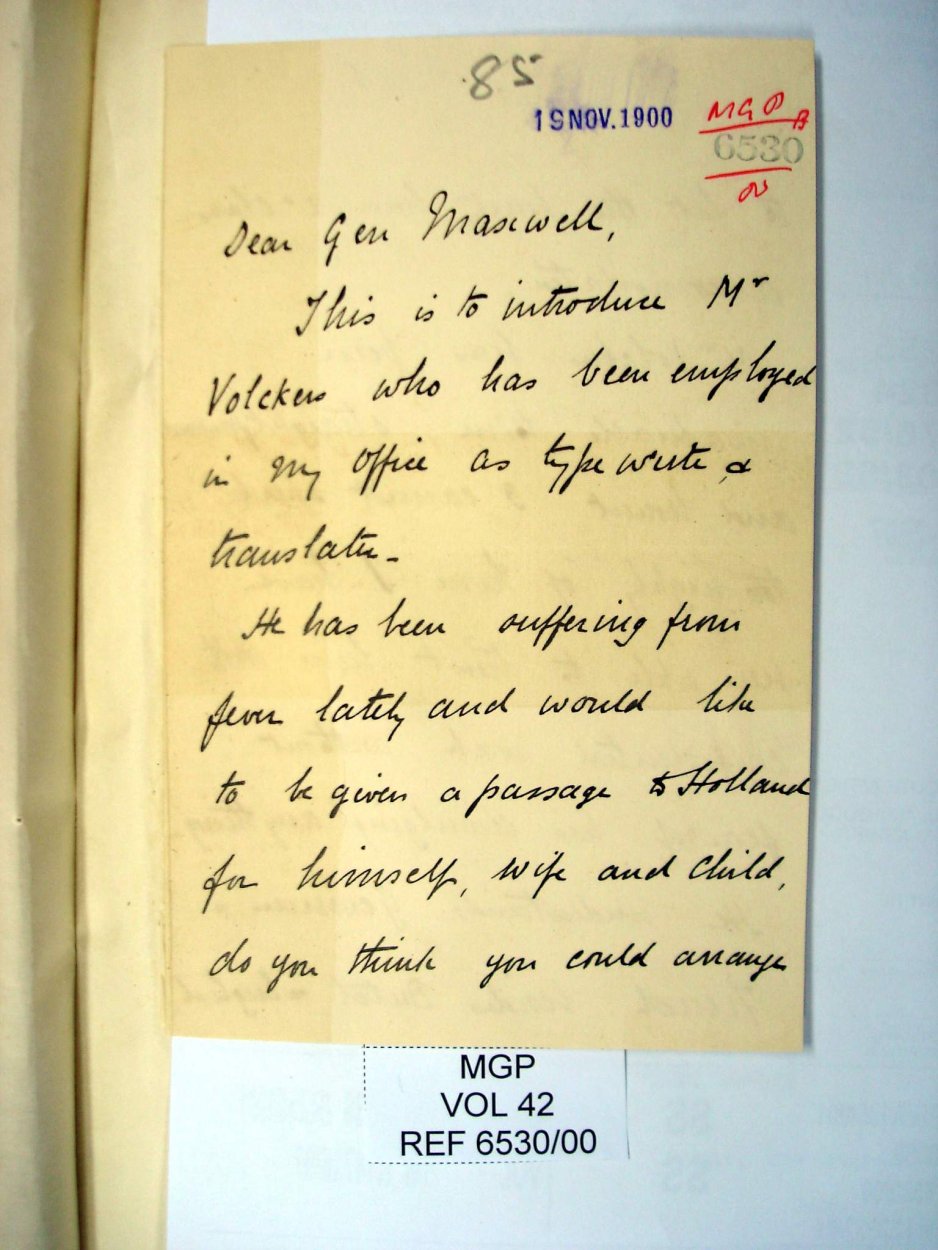 85
19 NOV. 1900
MGP
6530
Dear Gen Maxwell,
This is to introduce Mr
Volckers who has been employed
in my office as type write &
translater -
He has been suffering from
fever lately and would like
to be given a passage to Holland
for himself, wife and child,
do you think you could arrange
MGP
VOL 42
REF 6530/00